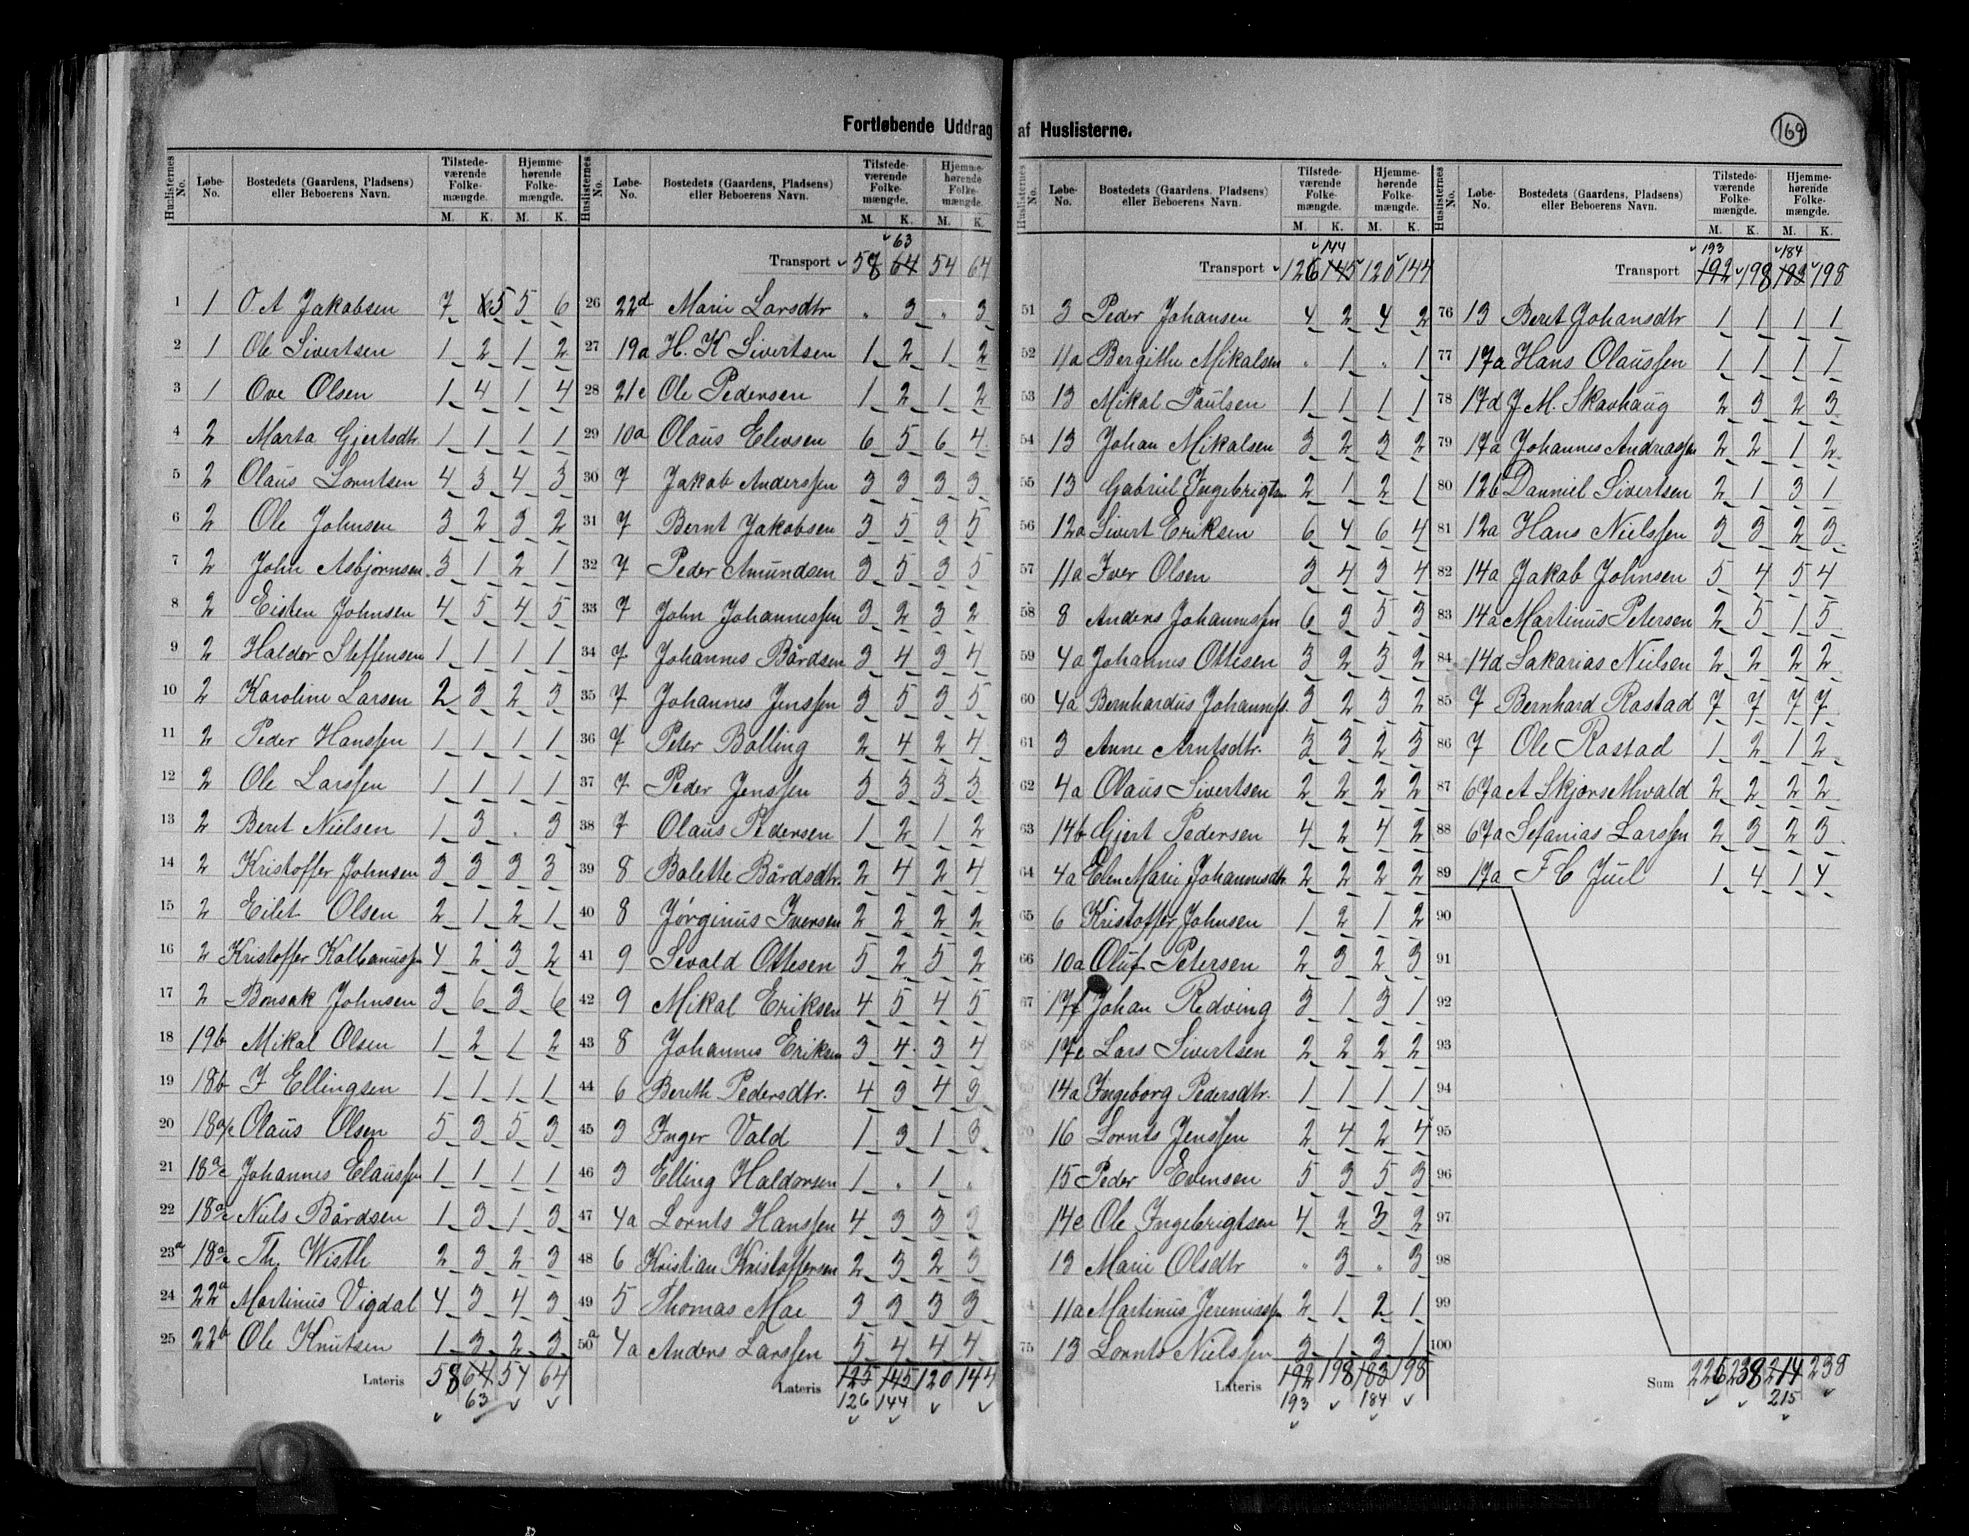 Fortløbende Uddrag af Huslisterne.
169
Huslisternes No. Løbe-No. Bostedets (Gaardens, Pladsens) eller Beboerens Navn. Tilstedeværende Folkemængde. M. K. Hjemmehørende Folkemængde. M. K.
1 1 O A Jakobsen 7 5 5 6
2 1 Ole Sivertsen 1 2 1 2
3 1 Ove Olsen 1 4 1 4
4 2 Marta Gjertsdtr 1 1 1 1
5 2 Olaus Lorntsen 4 3 4 3
6 2 Ole Johnsen 3 2 3 2
7 2 John Asbjørnsen 3 1 2 1
8 2 Eisten Johnsen 4 5 4 5
9 2 Haldor Steffensen 1 1 1 1
10 2 Karoline Larsen 2 3 2 3
11 2 Peder Hanssen 1 1 1 1
12 2 Ole Larssen 1 1 1 1
13 2 Beret Nielsen 1 3 . 3
14 2 Kristoffer Johnsen 3 3 3 3
15 2 Eilet Olsen 2 1 2 1
16 2 Kristoffer 4 2 3 2
17 2 Bonsak Johnsen 3 6 3 6
18 19b Mikal Olsen 1 2 1 2
19 18b J Ellingsen 1 1 1 1
20 18a/c Olaus Olsen 5 3 5 3
21 18a/c Johannes Claussen 1 1 1 1
22 18a/c Niels Bårdsen 1 3 1 3
23a 18a/c Th. Wisth 2 3 2 3
24 22a Martinus Vigdal 4 3 4 3
25 22b Ole Knutsen 1 3 2 3
Lateris 58 64 54 64
63
Huslisternes No. Løbe-No. Bostedets (Gaardens, Pladsens) eller Beboerens Navn. Tilstedeværende Folkemængde. M. K. Hjemmehørende Folkemængde. M. K.
63
Transport 58 64 54 64
26 22d Marie Larsdtr " 3 " 3
27 19a H. K Sivertsen 1 2 1 2
28 21c Ole Pedersen 1 2 1 2
29 10a Olaus Elevsen 6 5 6 4
30 7 Jakob Anderssen 3 3 3 3
31 7 Bernt Jakobsen 3 5 3 5
32 7 Peder Amundsen 3 5 3 5
33 7 John Johannessen 3 2 3 2
34 7 Johannes Bårdsen 3 4 3 4
35 7 Johannes Jenssen 3 5 3 5
36 7 Peter Bolling 2 4 2 4
37 7 Peder Jenssen 3 3 3 3
38 7 Olaus Pedersen 1 2 1 2
39 8 Bolette Bårdsdtr. 2 4 2 4
40 8 Jørginus Iversen 2 2 2 2
41 9 Sivald Ottesen 5 2 5 2
42 9 Mikal Eriksen 4 5 4 5
43 8 Johannes Eriksen 3 4 3 4
44 6 Bereth Pedersdtr. 4 3 4 3
45 3 Inger Vald 1 3 1 3
46 3 Elling Haldorsen 1 . 1 .
47 4a Lornts Hanssen 4 3 3 3
48 6 Kristian Kristoffersen 2 3 2 3
49 5 Thomas Moe 3 3 3 3
50a 4a Anders Larssen 5 4 4 4
Lateris 125 145 120 144
126 144
Huslisternes No. Løbe-No. Bostedets (Gaardens, Pladsens) eller Beboerens Navn. Tilstedeværende Folkemængde. M. K. Hjemmehørende Folkemængde. M. K.
144
Transport 126 145 120 144
51 3 Peder Johansen 4 2 4 2
52 11a Bergithe Mikalsen " 1 " 1
53 13 Mikal Paulsen 1 1 1 1
54 13 Johan Mikalsen 3 2 3 2
55 13 Gabriel Ingebrigtsn 2 1 2 1
56 12a Sivert Eriksen 6 4 6 4
57 11a Iver Olsen 3 4 3 4
58 8 Anders Johannessen 6 3 5 3
59 4a Johannes Ottesen 3 2 3 2
60 4a Bernhardus Johanness. 3 2 3 2
61 3 Anne Arntsdtr. 3 3 2 3
62 4a Olaus Sivertsen 2 2 2 2
63 14b Gjert Pedersen 4 2 4 2
64 4a Elen Marie Johannesdtr 2 2 2 2
65 6 Kristoffer Johnsen 1 2 1 2
66 10a Oluf Petersen 2 3 2 3
67 17f Johan Redving 3 1 3 1
68 17e Lars Sivertsen 2 2 2 2
14a Ingeborg Pedersdtr. 1 1 1 1
70 16 Lornts Jenssen 2 4 2 4
15 Peder Evensen 5 3 5 3
14e Ole Ingebrigtsen 4 2 3 2
13 Marie Olsdtr " 3 " 3
11a Martinus Jeremiassen 2 1 2 1
75 13 Lornts Nielssen 3 1 3 1
Lateris 192 198 183 198
193 184
Huslisternes No. Løbe-No. Bostedets (Gaardens, Pladsens) eller Beboerens Navn. Tilstedeværende Folkemængde. M. K. Hjemmehørende Folkemængde. M. K.
193 184
Transport 192 198 183 198
76 13 Beret Johansdtr 1 1 1 1
77 17a Hans Olaussen 1 1 1 1
78 17d J M. Skavhaug 2 3 2 3
79 17a Johannes Andreassen 2 2 1 2
80 12b Danniel Sivertsen 2 1 3 1
81 12a Hans Nielssen 3 3 2 3
82 14a Jakob Johnsen 5 4 5 4
83 14a Martinus Petersen 2 5 1 5
84 14d Sakarias Nielsen 2 2 2 2
85 7 Bernhard Rostad 7 7 7 7
86 7 Ole Rostad 1 2 1 2
87 67a A 2 2 2 2
88 67a Sefanias Larssen 2 3 2 3
89 17a F C Juel 1 4 1 4
90
91
92
93
94
95
96
97
98
99
100
Sum 226 238 214 238
215